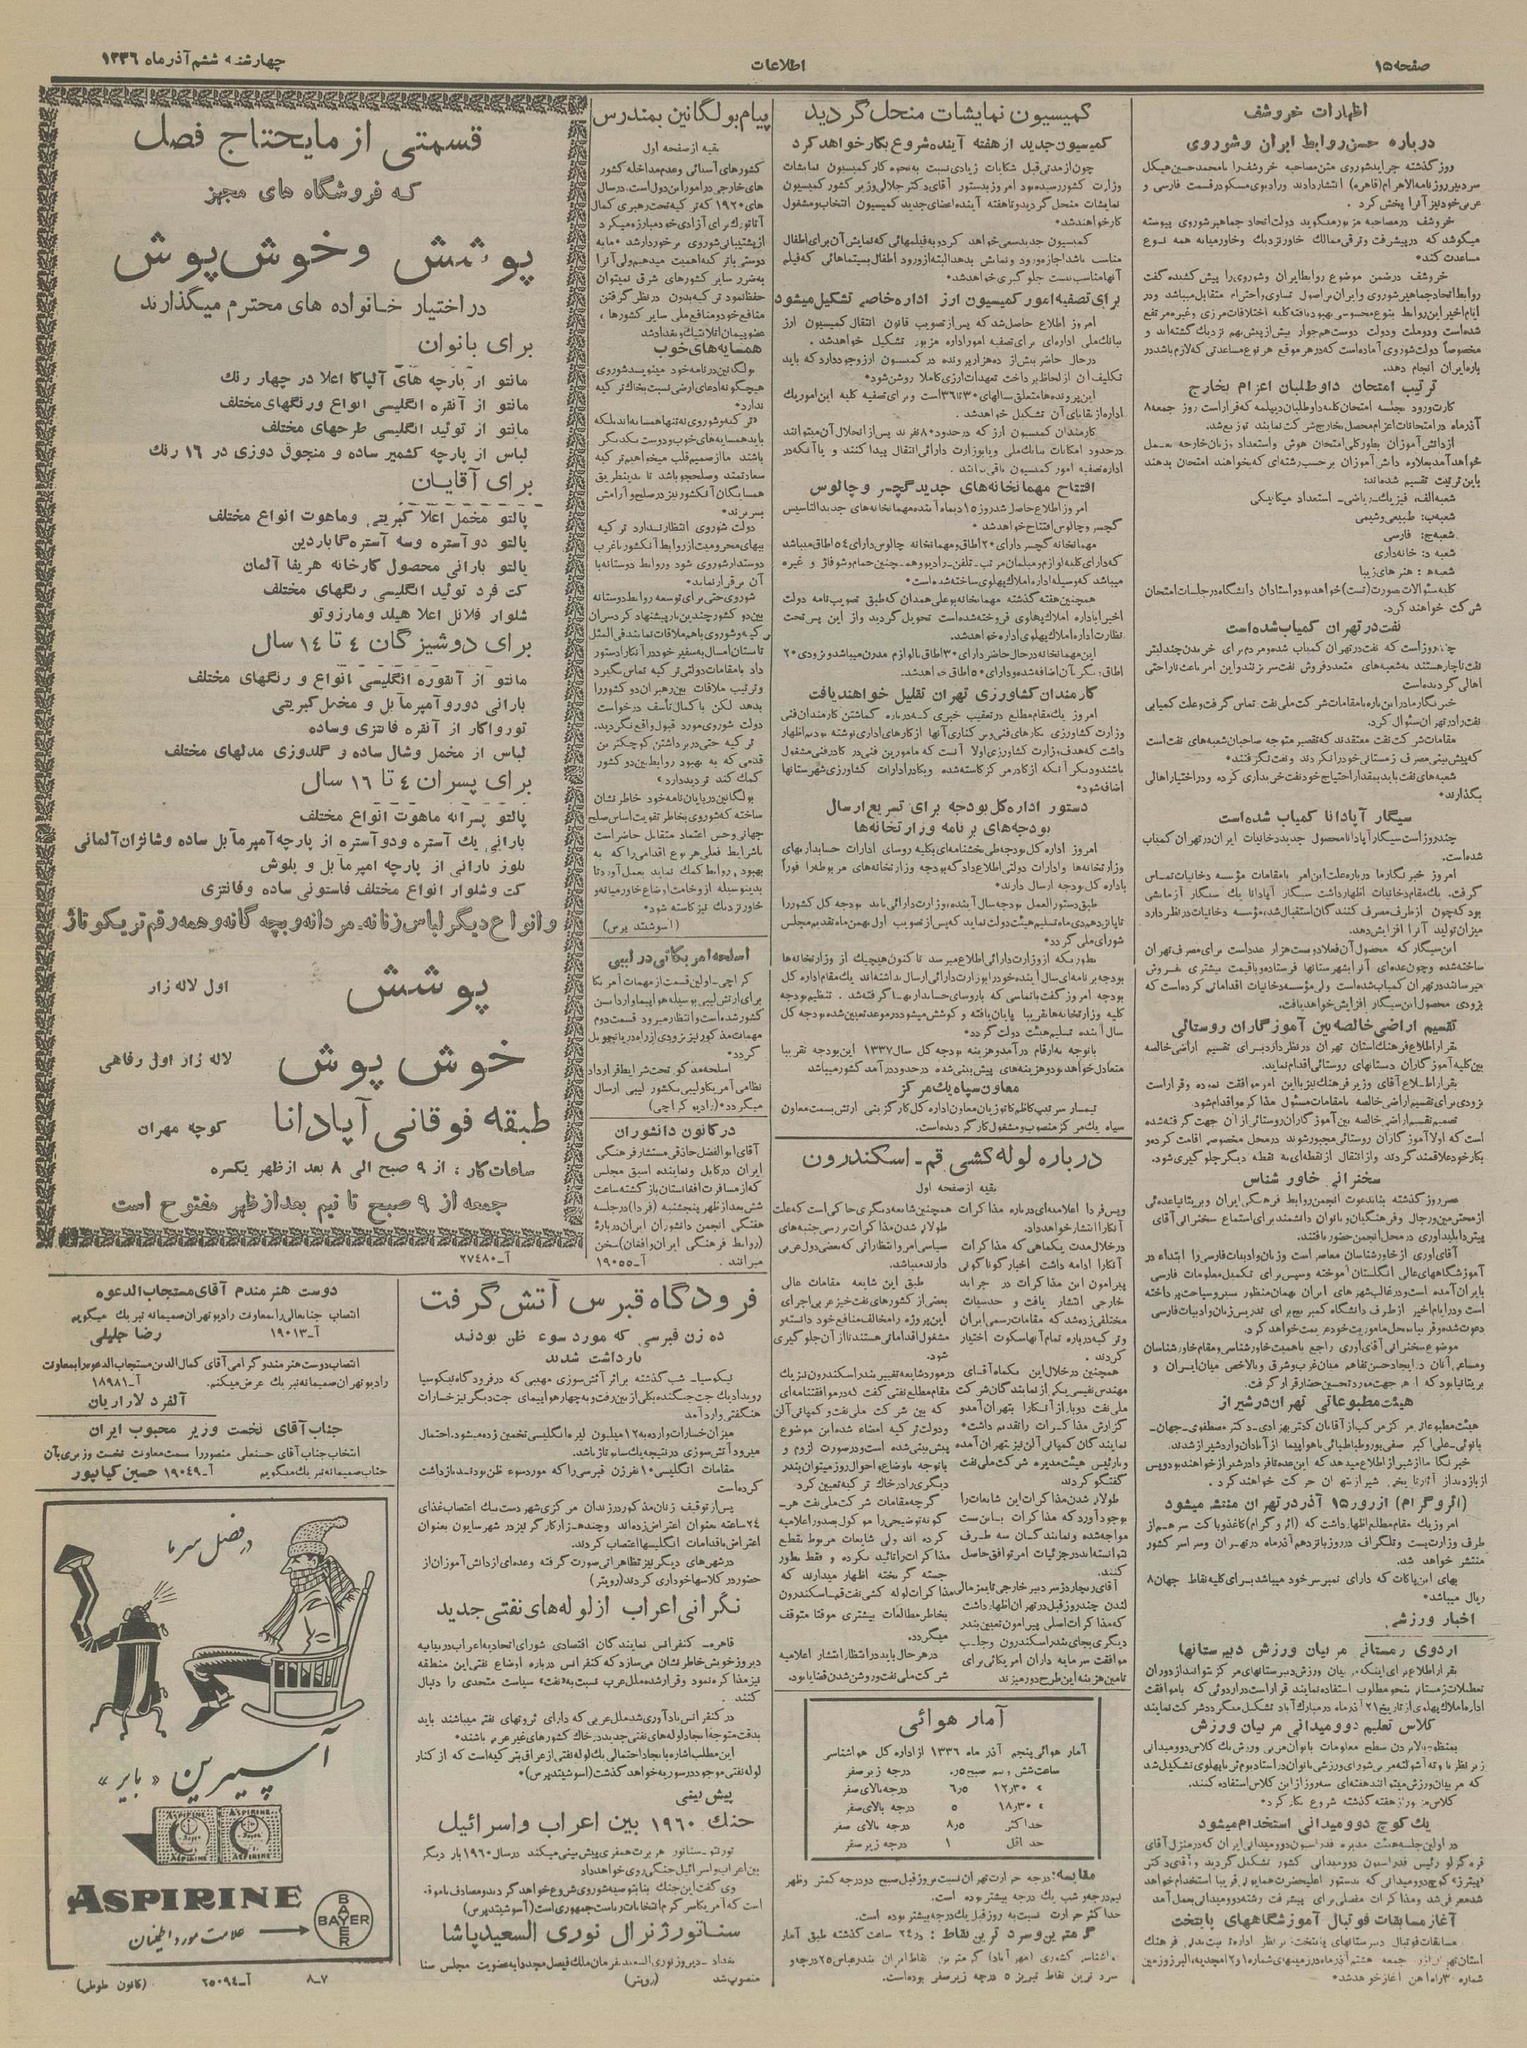 صفحه ۱۵
اطلاعات
چهارشنبه ششم آذر ماه ۱۳۳۶
اظهارات خروشف
درباره حسن روابط ایران و شوروی
روز گذشته جراید شوروی متن مصاحبه خروشف را با محمد حسین هیکل
سردبیر روزنامه الاهرام (قاهره) انتشار دادند و رادیوی مسکو در قسمت فارسی و
عربی خود نیز آنرا پخش کرد.
خروشف در مصاحبه مزبور میگوید دولت اتحاد جماهیر شوروی پیوسته
میکوشد که در پیشرفت و ترقی ممالک خاور نزدیک و خاورمیانه همه نوع
مساعدت کند.
خروشف در ضمن موضوع روابط ایران و شوروی را پیش کشیده گفت
روابط اتحاد جماهیر شوروی و ایران بر اصول تساوی و احترام متقابل میباشد و در
ایام اخیر این روابط بنوع محسوسی بهبود یافته کلیه اختلافات مرزی و غیره مرتفع
شده است و دو ملت و دولت دوست همجوار بیش از پیش بهم نزدیک گشته‌اند و
مخصوصاً دولت شوروی آماده است که در هر موقع هر نوع مساعدتی که لازم باشد در
باره ایران انجام دهد.
ترتیب امتحان داوطلبان اعزام بخارج
کارت ورود جلسه امتحان کلیه داوطلبان دیپلمه که قرار است روز جمعه ۸
آذرماه در امتحانات اعزام محصل بخارج شرکت نمایند توزیع شد.
از دانش آموزان بطور کلی امتحان هوش و استعداد و زبان خارجه بعمل
خواهد آمد بعلاوه دانش آموزان بر حسب رشته‌ای که بخواهند امتحان بدهند
باین ترتیب تقسیم شده‌اند:
شعبه الف، فیزیک - ریاضی - استعداد میکانیکی
شعبه ب: طبیعی و شیمی
شعبه ج: فارسی
شعبه د: خانه‌داری
شعبه ه: هنرهای زیبا
کلیه سئوالات بصورت (تست) خواهد بود و استادان دانشگاه در جلسات امتحان
شرکت خواهند کرد.
نفت در تهران کمیاب شده است
چند روز است که نفت در تهران کمیاب شده و مردم برای خریدن چند لیتر
نفت ناچار هستند به شعبه‌های متعدد فروش نفت سر بزنند و این امر باعث ناراحتی
اهالی گردیده است
خبرنگار ما در این باره با مقامات شرکت ملی نفت تماس گرفت و علت کمیابی
نفت را در تهران سئوال کرد.
مقامات شرکت نفت معتقدند که تقصیر متوجه صاحبان شعبه‌های نفت است
که پیش بینی مصرف زمستانی خود را نکردند و نفت نگرفتند.
شعبه‌های نفت باید بمقدار احتیاج خود نفت خریداری کرده و در اختیار اهالی
بگذارند.
سیگار آپادانا کمیاب شده است
چند روز است سیگار آپادانا محصول جدید دخانیات ایران در تهران کمیاب
شده است.
امروز خبرنگار ما درباره علت این امر با مقامات مؤسسه دخانیات تماس
گرفت. یک مقام دخانیات اظهار داشت سیگار آپادانا یک سیگار آزمایشی
بود که چون از طرف مصرف کنندگان استقبال شد، مؤسسه دخانیات در نظر دارد
میزان تولید آنرا افزایش دهد.
این سیگار که محصول آن فعلا دویست هزار عدد است برای مصرف تهران
ساخته شده و چون عده‌ای آنرا بشهرستانها فرستاده و با قیمت بیشتری بفروش
میرسانند در تهران کمیاب شده است ولی مؤسسه دخانیات اقداماتی کرده است که
بزودی محصول این سیگار افزایش خواهد یافت.
تقسیم اراضی خالصه بین آموزگاران روستائی
بقرار اطلاع فرهنگ استان تهران در نظر دارد برای تقسیم اراضی خالصه
بین کلیه آموزگاران دبستانهای روستائی اقدام نماید.
بقرار اطلاع آقای وزیر فرهنگ نیز با این امر موافقت نموده و قرار است
بزودی برای تقسیم اراضی خالصه با مقامات مسئول مذاکره و اقدام شود.
تصمیم تقسیم اراضی خالصه بین آموزگاران روستائی از آن جهت گرفته شده
است که اولا آموزگاران روستائی مجبور شوند در محل مخصوصی اقامت کرده و
بکار خود علاقمند گردند و از انتقال از نقطه‌ای به نقطه دیگر جلوگیری شود.
سخنرانی خاور شناس
عصر روز گذشته بنا بدعوت انجمن روابط فرهنگی ایران و بریتانیا عده‌ئی
از محترمین و رجال و فرهنگیان و بانوان دانشمند برای استماع سخنرانی آقای
پیتر آوری در محل انجمن حضور یافتند.
آقای آوری از خاورشناسان معاصر است و زبان و ادبیات فارسی را ابتدا در
آموزشگاههای عالی انگلستان آموخته و سپس برای تکمیل معلومات فارسی
بایران آمده است و در غالب شهرهای ایران بهمان منظور سیر و سیاحت پرداخته
است و در ایام اخیر از طرف دانشگاه کمبریج برای تدریس زبان و ادبیات فارسی
دعوت شده و قریباً بمحل ماموریت خود عزیمت خواهد کرد.
موضوع سخنرانی آقای آوری راجع باهمیت خاورشناسی و مقام خاورشناسان
و مساعی آنان در ایجاد حسن تفاهم میان غرب و شرق و بالاخص میان ایران و
بریتانیا بود که از هر جهت مورد تحسین حضار قرار گرفت.
هیئت مطبوعاتی تهران در شیراز
خبرنگار ما از شیراز اطلاع میدهد که این عده تا فردا در شیراز خواهند بود و پس
از بازدید از آثار تاریخی شیراز بتهران حرکت خواهند کرد.
(ائروگرام) از روز ۱۵ آذر در تهران منتشر میشود
امروز یک مقام مطلع اظهار داشت که (ائروگرام) کاغذ و پاکت سرهم از
طرف وزارت پست و تلگراف در روز پانزدهم آذرماه در تهران و سراسر کشور
منتشر خواهد شد.
بهای این پاکات که دارای تمبر سر خود میباشد برای کلیه نقاط جهان ۸
ریال میباشد.
اخبار ورزشی
اردوی زمستانی مربیان ورزش دبیرستانها
بقرار اطلاع برای اینکه مربیان ورزش دبیرستانهای مرکز بتوانند از دوران
تعطیلات زمستانی بنحو مطلوب استفاده نمایند قرار است در اردوئی که با موافقت
اداره املاک پهلوی از تاریخ ۲۱ آذر ماه در مبارک آباد تشکیل میگردد شرکت نمایند
کلاس تعلیم دوومیدانی مربیان ورزش
که مربیان ورزش میتوانند هفته‌ای سه روز از این کلاس استفاده کنند.
کلاس مزبور از هفته گذشته شروع بکار کرد.
یک کوچ دوومیدانی استخدام میشود
در اولین جلسه هیئت مدیره فدراسیون دوومیدانی ایران که در منزل آقای
قره گزلو رئیس فدراسیون دوومیدانی کشور تشکیل گردید و آقای دکتر
«پیترز» کوچ دوومیدانی که بدستور اعلیحضرت همایونی قریبا استخدام خواهد
شد معرفی شد و مذاکرات مفصلی برای پیشرفت رشته دوومیدانی بعمل آمد
آغاز مسابقات فوتبال آموزشگاههای پایتخت
کمیسیون نمایشات منحل گردید
کمیسیون جدید از هفته آینده شروع بکار خواهد کرد
چون از مدتی قبل شکایات زیادی نسبت به نحوه کار کمیسیون نمایشات
وزارت کشور رسیده بود امروز بدستور آقای دکتر جلالی وزیر کشور کمیسیون
نمایشات منحل گردید و تا هفته آینده اعضای جدید کمیسیون انتخاب و مشغول
کار خواهند شد.
کمیسیون جدید سعی خواهد کرد به فیلمهائی که نمایش آن برای اطفال
مناسب باشد اجازه ورود و نمایش بدهد البته از ورود اطفال بسینماهائی که فیلم
آنها مناسب نیست جلوگیری خواهد شد.
برای تصفیه امور کمیسیون ارز اداره خاصی تشکیل میشود
امروز اطلاع حاصل شد که پس از تصویب قانون انتقال کمیسیون ارز
ببانک ملی اداره‌ای برای تصفیه امور اداره مزبور تشکیل خواهد شد.
در حال حاضر بیش از ده هزار پرونده در کمیسیون ارز وجود دارد که باید
تکلیف آن از لحاظ پرداخت تعهدات ارزی کاملا روشن شود.
این پرونده‌ها متعلق بسالهای ۳۰ تا ۳۶ است و برای تصفیه کلیه این امور یک
اداره از بقایای آن تشکیل خواهد شد.
کارمندان کمیسیون ارز که در حدود ۸۰ نفرند پس از انحلال آن میتوانند
در حدود امکانات ببانک ملی و یا بوزارت دارائی انتقال پیدا کنند و یا آنکه در
اداره تصفیه امور کمیسیون باقی بمانند.
افتتاح مهمانخانه‌های جدید گچسر و چالوس
امروز اطلاع حاصل شد روز ۱۵ دیماه آینده مهمانخانه‌های جدیدالتاسیس
گچسر و چالوس افتتاح خواهد شد.
مهمانخانه گچسر دارای ۲۰ اطاق و مهمانخانه چالوس دارای ۵۴ اطاق میباشد
که دارای کلیه لوازم و مبلمان مرتب - تلفن - رادیو و همچنین حمام و شوفاژ و غیره
میباشد که بوسیله اداره املاک پهلوی ساخته شده است.
همچنین هفته گذشته مهمانخانه بوعلی همدان که طبق تصویب نامه دولت
اخیراً باداره املاک پهلوی فروخته شده است تحویل گردید و از این پس تحت
نظارت اداره املاک پهلوی اداره خواهد شد.
این مهمانخانه در حال حاضر دارای ۳۰ اطاق با لوازم مدرن میباشد و بزودی ۲۰
اطاق دیگر بآن اضافه شده و دارای ۵۰ اطاق خواهد شد.
کارمندان کشاورزی تهران تقلیل خواهند یافت
امروز یک مقام مطلع در تعقیب خبری که درباره گماشتن کارمندان فنی
وزارت کشاورزی بکارهای فنی و برکناری آنها از کارهای اداری نوشته بودیم اظهار
داشت که هدف وزارت کشاورزی اولا آنست که مامورین فنی در کادر فنی مشغول
باشند و دیگر آنکه از کادر مرکز کاسته شده و بکادر ادارات کشاورزی شهرستانها
اضافه شود.
دستور اداره کل بودجه برای تسریع ارسال
بودجه‌های برنامه وزارتخانه‌ها
امروز اداره کل بودجه طی بخشنامه‌ای بکلیه روسای ادارات حسابداریهای
وزارتخانه‌ها و ادارات دولتی اطلاع داد که بودجه وزارتخانه‌های مربوطه را فوراً
باداره کل بودجه ارسال دارند.
طبق دستورالعمل بودجه سال آینده، وزارت دارائی باید بودجه کل کشور را
تا پانزدهم دی ماه تسلیم هیئت دولت نماید که پس از تصویب اول بهمن ماه تقدیم مجلس
شورای ملی گردد.
بطوریکه از وزارت دارائی اطلاع میرسد تاکنون هیچیک از وزارتخانه‌ها
بودجه برنامه‌ای سال آینده خود را بوزارت دارائی ارسال نداشته‌اند یک مقام اداره کل
بودجه امروز گفت با تماسی که با روسای حسابداریها گرفته شد، تنظیم بودجه
کلیه وزارتخانه‌ها تقریبا پایان یافته و کوشش میشود در موعد تعیین شده بودجه کل
سال آینده تسلیم هیئت دولت گردد.
با توجه به ارقام درآمد و هزینه بودجه کل سال ۱۳۳۷ این بودجه تقریبا
متعادل خواهد بود و هزینه‌های پیش بینی شده در حدود درآمد کشور میباشد
معاون سپاه یک مرکز
تیمسار سرتیپ کاظم کاتوزیان معاون اداره کل کارگزینی ارتش بسمت معاون
سپاه یک مرکز منصوب و مشغول کار گردیده است.
درباره لوله کشی قم - اسکندرون
بقیه از صفحه اول
و پس فردا اعلامیه‌ای درباره مذاکرات
آنکارا انتشار خواهد داد.
در خلال مدت یکماهی که مذاکرات
آنکارا ادامه داشت اخبار گوناگونی
پیرامون این مذاکرات در جراید
خارجی انتشار یافت و حدسیات
مختلفی زده شد که مقامات رسمی ایران
و ترکیه درباره تمام آنها سکوت اختیار
کردند.
همچنین در خلال این یکماه آقای
مهندس نفیسی یکی از نمایندگان شرکت
ملی نفت دوبار از آنکارا بتهران آمد و
گزارش مذاکرات را تقدیم داشت.
نمایندگان کمپانی آلن نیز بتهران آمده
و با رئیس هیئت مدیره شرکت ملی نفت
گفتگو کردند
طولانی شدن مذاکرات این شایعات را
بوجود آورد که مذاکرات با بن بست
مواجه شده و نمایندگان سه طرف
نتوانسته‌اند در جزئیات امر توافق حاصل
کنند.
آقای ریچاردز سردبیر خارجی تایمز مالی
لندن چند روز قبل در تهران اظهار داشت
که مذاکرات اصلی پیرامون تعیین بندر
دیگری بجای بندر اسکندرون و جلب
موافقت سرمایه داران امریکائی برای
تامین هزینه این طرح دور میزند
همچنین شایعه دیگری حاکی است که علت
طولانی شدن مذاکرات بررسی جنبه‌های
سیاسی امر و انتظاراتی که بعضی دول عربی
دارند میباشد.
طبق این شایعه مقامات عالی
بعضی از کشورهای نفت خیز عربی اجرای
این پروژه را مخالف منافع خود دانسته و
مشغول اقداماتی هستند تا از آن جلوگیری
شود.
در مورد شایعه تغییر بندر اسکندرون نیز یک
مقام مطلع نفتی گفت که در موافقتنامه‌ای
که بین شرکت ملی نفت و کمپانی آلن
و دولت ترکیه امضاء شده این موضوع
پیش بینی شده است و در صورت لزوم و
با توجه باوضاع و احوال روز میتوان بندر
دیگری را در خاک ترکیه تعیین کرد
گرچه مقامات شرکت ملی نفت هر
گونه توضیحی را موکول بصدور اعلامیه
کرده‌اند ولی شایعات مربوط بقطع
مذاکرات را تائید نکرده و فقط بطور
جسته گریخته اظهار میدارند که
مذاکرات لوله کشی نفت قم - اسکندرون
بخاطر مطالعات بیشتری موقتا متوقف
میگردد.
در هر حال باید در انتظار انتشار اعلامیه
شرکت ملی نفت و روشن شدن قضایا بود.
آمار هوائی
آمار هوائی پنجم آذر ماه ۱۳۳۶ از اداره کل هواشناسی
ساعت شش و نیم صبح ۰٫۵ درجه زیر صفر
» ۱۲٫۳۰ ۶٫۵ درجه بالای صفر
» ۱۸٫۳۰ ۵ درجه بالای صفر
حداکثر ۸٫۵ درجه بالای صفر
حداقل ۱ درجه زیر صفر
مقایسه: درجه حرارت تهران نسبت بروز قبل صبح دو درجه کمتر و ظهر
نیم درجه و شب یک درجه بیشتر بوده است.
حداکثر حرارت نسبت به روز قبل یک درجه بیشتر بوده است.
گرمترین و سردترین نقاط: در ۲۴ ساعت گذشته طبق آمار
هواشناسی کشوری (مهرآباد) گرمترین نقاط ایران بندرعباس ۲۵ درجه و
سردترین نقاط تبریز ۵ درجه زیر صفر بوده است.
پیام بولگانین بمندرس
بقیه از صفحه اول
کشورهای آسیائی و عدم مداخله کشور
های خارجی در امور این دول است. در سال
های ۱۹۲۰ که ترکیه تحت رهبری کمال
آتاتورک برای آزادی خود مبارزه میکرد
از پشتیبانی شوروی برخوردار شد. ما به
دوستی با ترکیه اهمیت میدهیم ولی آنرا
به ضرر سایر کشورهای شرق نمیتوان
حفظ نمود ترکیه بدون در نظر گرفتن
منافع خود و منافع ملی سایر کشورها،
عضو پیمان آتلانتیک و بغداد شد
همسایه‌های خوب
بولگانین در نامه خود مینویسد شوروی
هیچگونه ادعای ارضی نسبت بخاک ترکیه
ندارد.
ترکیه و شوروی نه تنها همسایه‌اند بلکه
باید همسایه‌های خوب و دوست یکدیگر
باشند ما از صمیم قلب میخواهیم ترکیه
سعادتمند و صلحجو باشد تا بدینطریق
همسایگان آنکشور نیز در صلح و آرامش
بسر برند.
دولت شوروی انتظار ندارد ترکیه
ببهای محرومیت از روابط آنکشور با غرب
دوستدار شوروی شود و روابط دوستانه با
آن برقرار نماید.
شوروی حتی برای توسعه روابط دوستانه
بین دو کشور چندین بار پیشنهاد کرد سران
ترکیه و شوروی باهم ملاقات نمایند فی المثل
تابستان امسال به سفیر خود در آنکارا دستور
داد با مقامات دولتی ترکیه تماس بگیرد
و ترتیب ملاقات بین رهبران دو کشور را
بدهد لکن با کمال تأسف درخواست
دولت شوروی مورد قبول واقع نگردید.
ترکیه حتی در برداشتن کوچکترین
قدمی که به بهبود روابط بین دو کشور
کمک کند تردید دارد.
بولگانین در پایان نامه خود خاطر نشان
ساخته که شوروی بخاطر تقویت اساس صلح
جهانی و حس اعتماد متقابل حاضر است
با شرایط فعلی هر نوع اقدامی را که به
بهبود روابط کمک نماید بعمل آورد تا
بدینوسیله از وخامت اوضاع خاورمیانه و
خاور نزدیک نیز کاسته شود.
(اسوشیتد پرس)
اسلحه امریکائی در لیبی
کراچی - اولین قسمت از مهمات آمریکا
برای ارتش لیبی بوسیله هواپیما وارد این
کشور شده است و انتظار میرود قسمت دوم
مهمات مذکور نیز بزودی از راه دریا تحویل
گردد.
اسلحه مذکور تحت شرایط قرارداد
نظامی آمریکا و لیبی بکشور لیبی ارسال
میگردد. (رادیو کراچی)
در کانون دانشوران
آقای ابوالفضل حاذقی مستشار فرهنگی
ایران در کابل و نماینده اسبق مجلس
که از مسافرت افغانستان بازگشته ساعت
شش بعد از ظهر پنجشنبه (فردا) در جلسه
هفتگی انجمن دانشوران ایران درباره
(روابط فرهنگی ایران و افغان) سخن
میرانند. آ-۱۹۰۵۵
قسمتی از مایحتاج فصل
که فروشگاه های مجهز
پوشش و خوش پوش
در اختیار خانواده های محترم میگذارند
برای بانوان
مانتو از پارچه های آلپاکا اعلا در چهار رنگ
مانتو از آنقره انگلیسی انواع و رنگهای مختلف
مانتو از توئید انگلیسی طرحهای مختلف
لباس از پارچه کشمیر ساده و منجوق دوزی در ۱۶ رنگ
برای آقایان
پالتو مخمل اعلا کبریتی و ماهوت انواع مختلف
پالتو دو آستره و سه آستره گاباردین
پالتو بارانی محصول کارخانه هریفا آلمان
کت فرد توئید انگلیسی رنگهای مختلف
شلوار فلانل اعلا هیلد و مارزوتو
برای دوشیزگان ۴ تا ۱۴ سال
مانتو از آنقوره انگلیسی انواع و رنگهای مختلف
بارانی دورو آمپرمآبل و مخمل کبریتی
تورواکار از آنقره فانتزی و ساده
لباس از مخمل و شال ساده و گلدوزی مدلهای مختلف
برای پسران ۴ تا ۱۶ سال
پالتو پسرانه ماهوت انواع مختلف
بارانی یک آستره و دو آستره از پارچه آمپرمآبل ساده و شانژان آلمانی
بلوز بارانی از پارچه آمپرمآبل و پلوش
کت و شلوار انواع مختلف فاستونی ساده و فانتزی
و انواع دیگر لباس زنانه. مردانه و بچه گانه و همه رقم تریکوتاژ
پوشش اول لاله زار
خوش پوش لاله زار اول رفاهی
طبقه فوقانی آپادانا کوچه مهران
ساعات کار: از ۹ صبح الی ۸ بعد از ظهر یکسره
جمعه از ۹ صبح تا نیم بعد از ظهر مفتوح است
آ-۲۷۴۸۰
فرودگاه قبرس آتش گرفت
ده زن قبرسی که مورد سوء ظن بودند
بازداشت شدند
نیکوسیا - شب گذشته بر اثر آتش سوزی مهیبی که در فرودگاه نیکوسیا
رویداد یک جت جنگنده بکلی از بین رفت و به چهار هواپیمای جت دیگر نیز خسارات
هنگفتی وارد آمد
میزان خسارات وارده به ۱۲ میلیون لیره انگلیسی تخمین زده میشود. احتمال
میرود آتش سوزی در نتیجه یک سابوتاژ باشد.
مقامات انگلیسی ۱۰ نفر زن قبرسی را که مورد سوء ظن بودند بازداشت
کرده است
پس از توقیف زنان مذکور در زندان مرکزی شهر دست بیک اعتصاب غذای
۲۴ ساعته بعنوان اعتراض زده‌اند و چند هزار کارگر نیز در شهر سایون بعنوان
اعتراض باقدامات انگلیسها اعتصاب کردند.
در شهرهای دیگر نیز تظاهراتی صورت گرفته و عده‌ای از دانش آموزان از
حضور در کلاسها خودداری کردند (رویتر)
نگرانی اعراب از لوله های نفتی جدید
قاهره - کنفرانس نمایندگان اقتصادی شورای اتحادیه اعراب در بیانیه
دیروز خویش خاطر نشان میسازد که کنفرانس درباره اوضاع نفتی این منطقه
نیز مذاکره نمود و قرار شد ملل عرب نسبت به «نفت» سیاست متحدی را دنبال
کنند.
در کنفرانس یادآوری شد ملل عربی که دارای ثروتهای نفتی میباشند باید
بدقت متوجه ایجاد لوله‌های نفتی جدید در خاک کشورهای غیر عربی باشند.
این مطلب اشاره بایجاد احتمالی یک لوله نفتی از عراق بترکیه است که از کنار
لوله نفتی موجود در سوریه خواهد گذشت (اسوشیتدپرس).
پیش بینی
جنگ ۱۹۶۰ بین اعراب و اسرائیل
تورنتو - سناتور هربرت همفری پیش بینی میکند در سال ۱۹۶۰ بار دیگر
بین اعراب و اسرائیل جنگی روی خواهد داد
وی گفت این جنگ بنا بتوصیه شوروی شروع خواهد گردید و مصادف با موقعی
است که آمریکا سرگرم انتخابات ریاست جمهوری است (آسوشیتدپرس)
سناتور ژنرال نوری السعید پاشا
بغداد - دیروز نوری السعید بفرمان ملک فیصل مجددا به عضویت مجلس سنا
منصوب شد (رویتر)
دوست هنرمندم آقای مستجاب الدعوه
انتصاب جنابعالی را بمعاونت رادیو تهران صمیمانه تبریک میگویم
آ-۱۹۰۱۳ رضا جلیلی
انتصاب دوست هنرمند و گرامی آقای کمال الدین مستجاب الدعوه را بمعاونت
رادیو تهران صمیمانه تبریک عرض میکنم. آ-۱۸۹۸۱
آلفرد لازاریان
جناب آقای نخست وزیر محبوب ایران
انتخاب جناب آقای حسنعلی منصور را بسمت معاونت نخست وزیری بآن
جناب صمیمانه تبریک میگویم آ-۱۹۰۴۹ حسین کیاپور
در فصل سرما
آسپیرین «بایر»
ASPIRINE
ASPIRINE
ASPIRINE
ASPIRINE
ASPIRINE
BAYER
BAYER
علامت مورد اطمینان
۸-۷ آ-۲۵۰۹۴ (کانون طوطی)